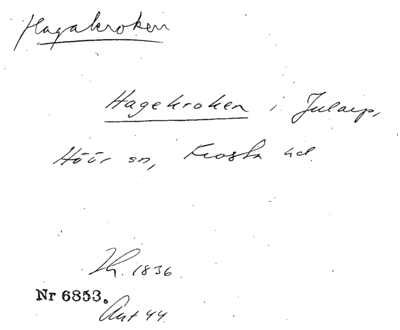 Hagakroken
Hagekroken i Jularp,
Höör sn, Frosta hd.
1836
Nr 6853.
Akt 44